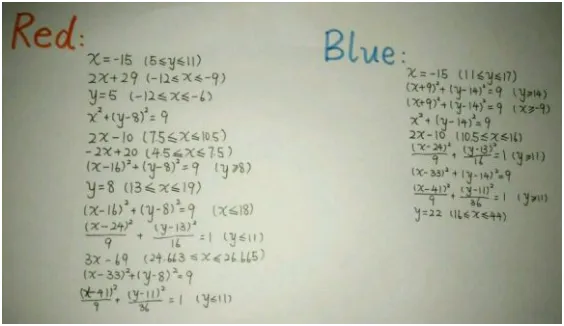 Red:
x=-15 (5≤y≤11)
2x+29 (-12≤x≤-9)
y=5 (-12≤x≤-6)
x²+(y-8)²=9
2x-10 (7.5≤x≤10.5)
-2x+20 (4.5≤x≤7.5)
(x-16)²+(y-8)²=9 (y≥8)
y=8 (13≤x≤19)
(x-16)²+(y-8)²=9 (x≤18)
(x-24)²/9 + (y-13)²/16 =1 (y≤11)
3x-69 (24.663≤x≤26.665)
(x-33)²+(y-8)²=9
(x-41)²/9 + (y-11)²/36 = 1 (y≤11)
Blue:
x=-15 (11≤y≤17)
(x+9)²+(y-14)²=9 (y≥14)
(x+9)²+(y-14)²=9 (x≥-9)
x²+(y-14)²=9
2x-10 (10.5≤x≤16)
(x-24)²/9 + (y-13)²/16 =1 (y≥11)
(x-33)²+(y-14)²=9
(x-41)²/9 + (y-11)²/36 = 1 (y≥11)
y=22 (16≤x≤44)